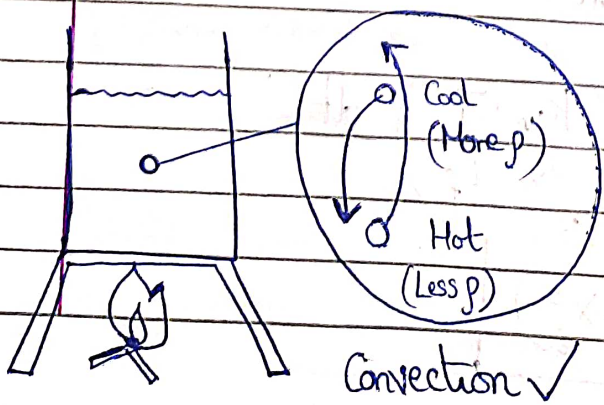 Cool
(More ρ)
Hot
(Less ρ)
Convection ✓